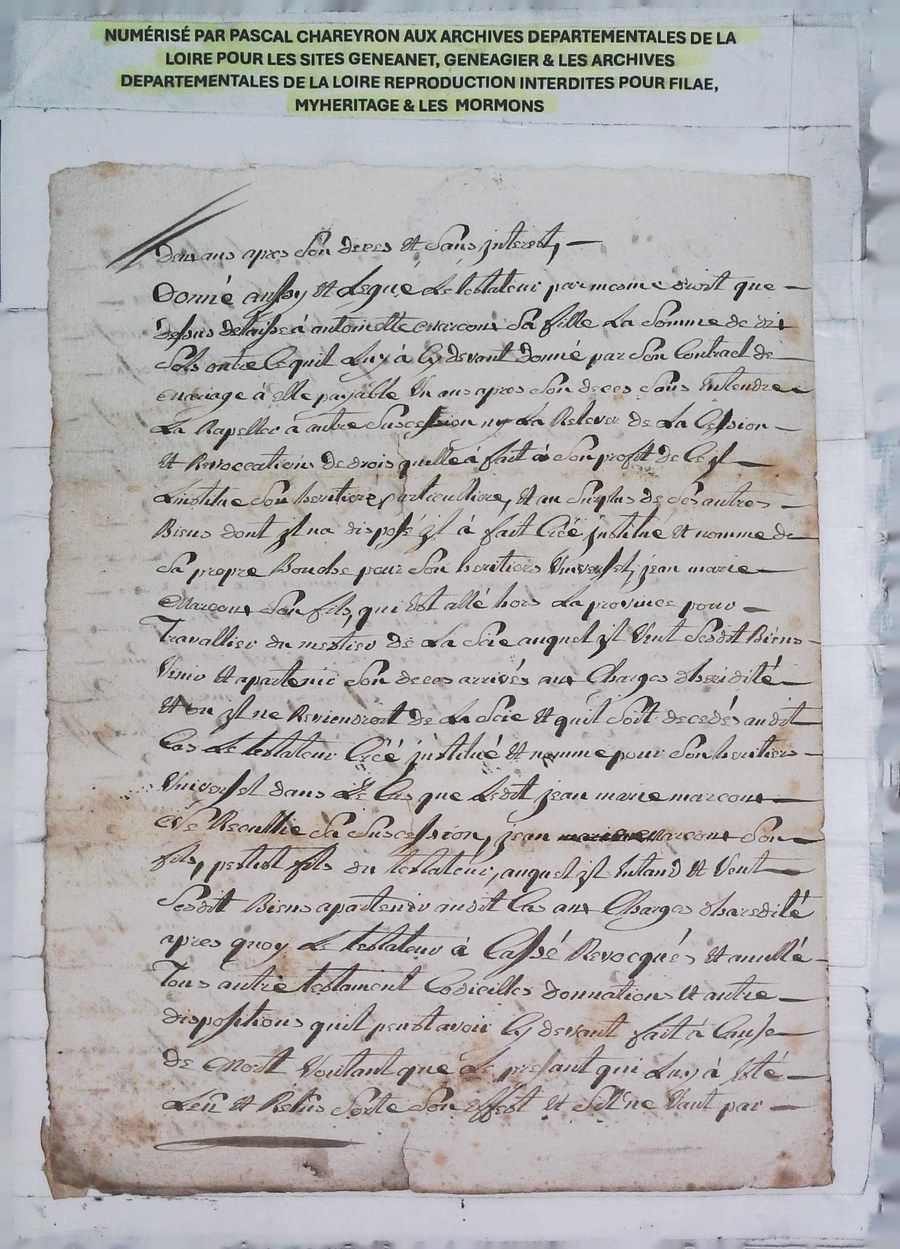 NUMÉRISÉ PAR PASCAL CHAREYRON AUX ARCHIVES DEPARTEMENTALES DE LA
LOIRE POUR LES SITES GENEANET, GENEAGIER & LES ARCHIVES
DEPARTEMENTALES DE LA LOIRE REPRODUCTION INTERDITES POUR FILAE,
MYHERITAGE & LES MORMONS
ans apres son deces et sans interest,
Donné aussy et Legué Le testateur par mesme droit que
dessus delaissé à antoinette marcoux Sa fille La Somme de dix
Sols outre Ce quil Luy à Cy devant donné par Son Contract de
mariage à elle payable Un ans apres Son deces Sans entendre
La Rapeller à autre Succession ny La Relever de La Cession
et Revoccations de drois quelle à fait à Son profit de Ce jl
Linstitue Son heritiere particulliere, et au Surplus de Ses autres
Biens dont jl na disposé jl à fait Créé jnstitué et nomme de
Sa propre Bouche pour Son heritiers Universel, jean marie
Marcoux Son fils, qui est allé hors La province pour
Travallier du mestier de La Scie auquel jl Veut Sesdit Biens
Venir et apartenir Son deces arrivés aux Charges dheridité
Et ou jl ne Reviendroit de La Scie et quil Soit decedés audit
Cas Le testateur Créé jnstitué et nomme pour Son heritiers
Universel dans Le Cas que Ledit jean marie marcoux
Eve Recullie Sa Succession, jean Marcoux Son
fils, pestiot fils du testateur, auquel jl Entand et Veut
Sesdit Biens apartenir audit Cas aux Charges dhareditté
apres quoy Le testateur à Cassé Revocqués et annullé
Tous autre testament Codicilles donnations et autre
dispositions quil peust avoir Cy devant fait à Cause
de Mort Voulant que Le presant qui Luy à Esté
Leu et Relus Sorte Son effest et Sil ne Vaut par